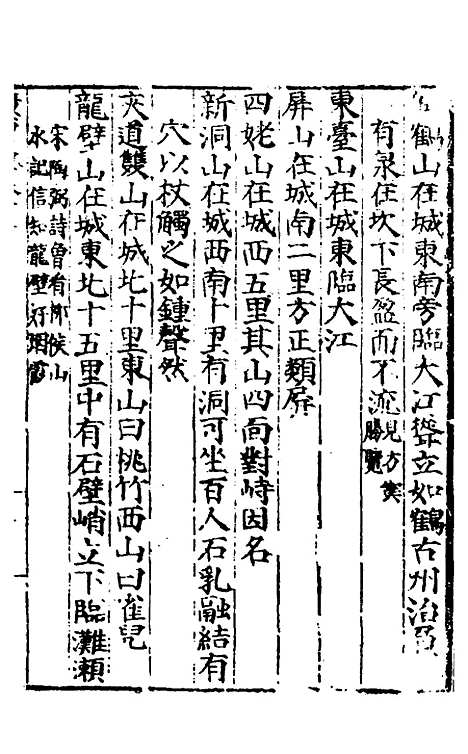 鶴山在城東南旁臨大江聳立如鶴古州治
有泉在坎下長盈而不流見方輿勝覽
東臺山在城東臨大江
屏山在城南二里方正類屏
四姥山在城西五里其山四面對峙因名
新洞山在城西南十里有洞可坐百人石乳融結有
穴以杖觸之如鍾聲然
夾道雙山在城北十里東山曰桃竹西山曰雀兒
龍壁山在城東北十五里中有石壁峭立下臨灘瀨
宋陶弼詩曾看柳侯山
水記信知龍壁好